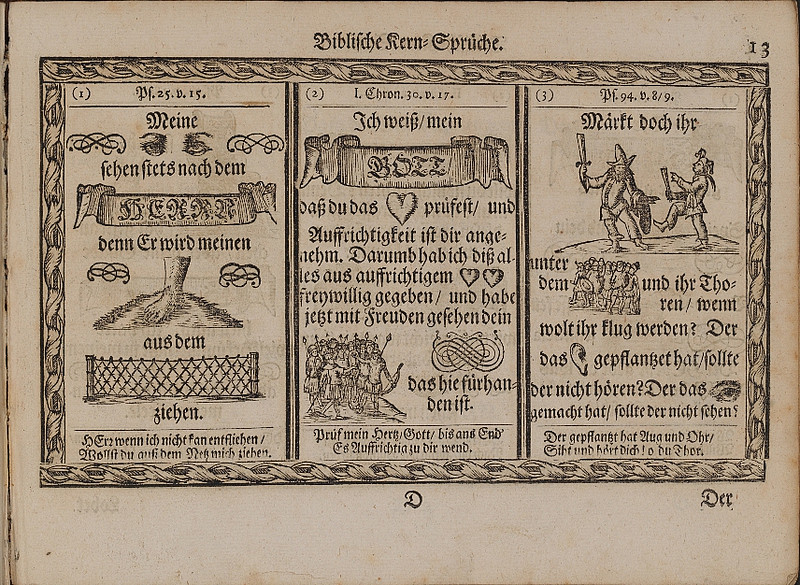 Biblische Kern-Sprüche.
13
(1) Ps. 25. v. 15.
Meine
sehen stets nach dem
HERRN
denn Er wird meinen
aus dem
ziehen.
HErr wenn ich nicht kan entfliehen/
Wollst du auß dem Netz mich ziehen.
(2) I. Chron. 30. v. 17.
Ich weiß/ mein
GOTT
daß du das prüfest/ und
Auffrichtigkeit ist dir ange-
nehm. Darumb hab ich diß al-
les aus auffrichtigem
freywillig gegeben/ und habe
jetzt mit Freuden gesehen dein
das hie fürhan-
den ist.
Prüf mein Hertz/ Gott/ bis ans End'
Es Auffrichtig zu dir wend.
(3) Ps. 94. v. 8/9.
Märkt doch ihr
unter
dem und ihr Tho-
ren/ wenn
wolt ihr klug werden? Der
das gepflantzet hat/ sollte
der nicht hören? Der das
gemacht hat/ sollte der nicht sehen?
Der gepflantzt hat Aug und Ohr/
Siht und hört dich/ o du Thor.
D
Der